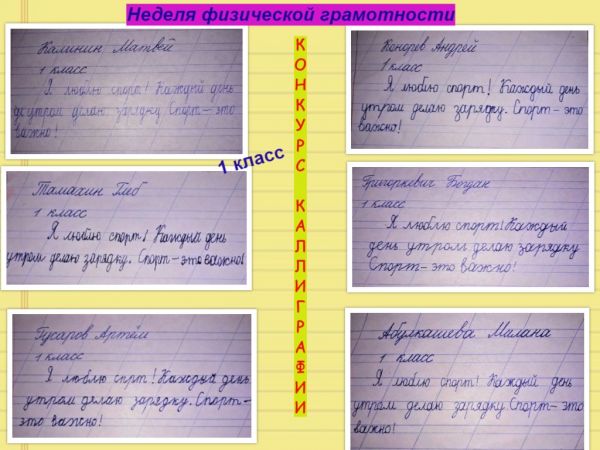 Неделя физической грамотности
Калинин Матвей
1 класс
Я люблю спорт! Каждый день
утром делаю зарядку. Спорт – это
важно!
Тамахин Глеб
1 класс
Я люблю спорт! Каждый день
утром делаю зарядку. Спорт – это важно!
Гусаров Артём
1 класс
Я люблю спрт! Каждый день
утром делаю зарядку. Спорт –
это важно!
1 класс
КОНКУРС КАЛЛИГРАФИИ
Кондрев Андрей
1 класс
Я люблю спорт! Каждый день
утром делаю зарядку. Спорт – это
важно!
Григоркевич Богдан
1 класс
Я люблю спорт! Каждый
день утром делаю зарядку
Спорт – это важно!
Абулкашева Милана
1 класс
Я люблю спорт! Каждый день
утром делаю зарядку Спорт – это
важно!